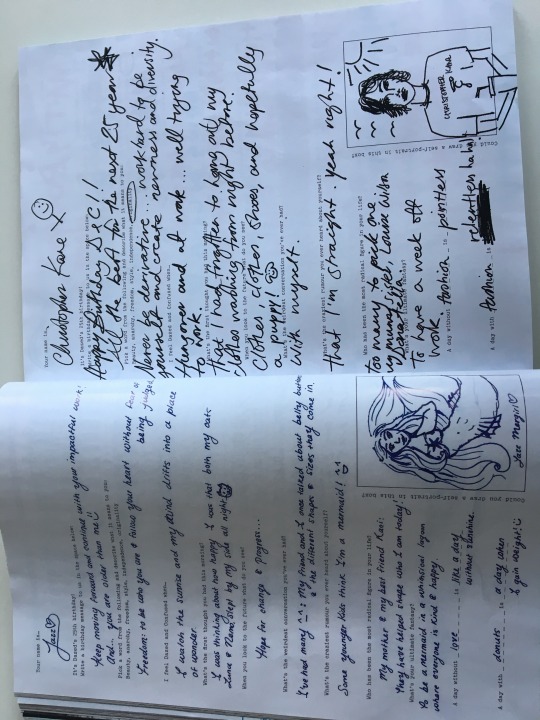 Your name is…
Christopher Kane
It's Dazed's 25th birthday!
Write a birthday message to us in the space below:
Happy Birthday D+C!!
the next 25 years
Pick a word from the following and describe what it means to you:
Beauty, anarchy, freedom, style, independence,
Never be derivative.. work hard to be
yourself and create newness and diversity.
I feel Dazed and Confused when…
Hungover and at work... well trying
to work
What's the first thought you had this morning?
That I had forgotten to hang out my
clothes washing from night before.
When you look to the future what do you see?
Clothes, clothes, shoes, and hopefully
a puppy!
What's the weirdest conversation you've ever had?
With myself.
What's the craziest rumour you ever heard about yourself?
That I'm straight. Yeah right!
Who has been the most radical figure in your life?
too many to pick one
my mum, sister, Louise Wilson
What's your ultimate fantasy?
To have a week off
work.
A day without fashion is pointless
A day with fashion is relentless ha ha!
Could you draw a self-portrait in this box?
CHRISTOPHER KANE
Your name is…
Jazz
It's Dazed's 25th birthday!
Write a birthday message to us in the space below:
Keep moving forward and continue with your impactful work!
And... you are older than me
Pick a word from the following and describe what it means to you:
Beauty, anarchy, freedom, style, independence, originality
Freedom: to be who you are & follow your heart without fear of
being judged
I feel Dazed and Confused when…
I watch the sunrise and my mind drifts into a place
of wonder.
What's the first thought you had this morning?
I was thinking about how happy I was that both my cats
Luna & slept by my side all night
When you look to the future what do you see?
Hope for change & progress...
What's the weirdest conversation you've ever had?
I've had many ^^; My friend and I once talked about belly buttons
& the different shapes & sizes they come in.
What's the craziest rumour you ever heard about yourself?
Some younger kids think I'm a mermaid! ^^
Who has been the most radical figure in your life?
My mother & my best friend Kari;
they have helped shape who I am today!
What's your ultimate fantasy?
To be a mermaid in a whimsical lagoon
where everyone is kind & happy.
A day without love is like a day
without sunshine.
A day with donuts is a day when
I gain weight!
Could you draw a self-portrait in this box?
Jazz Mergirl